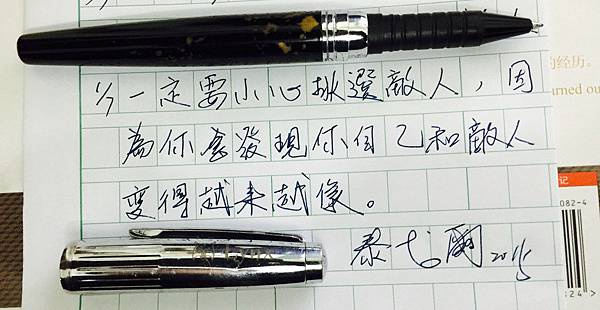 的经历。
rned ou
1/9 一定要小心挑選敵人，因
為你會發現你自己和敵人
變得越来越像。
记
082-4
泰戈爾 2015
24 >